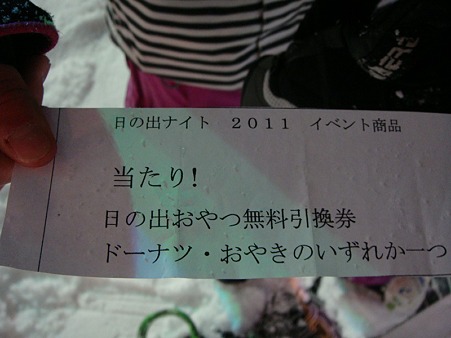 日の出ナイト 2011 イベント商品
当たり!
日の出おやつ無料引換券
ドーナツ・おやきのいずれか一つ